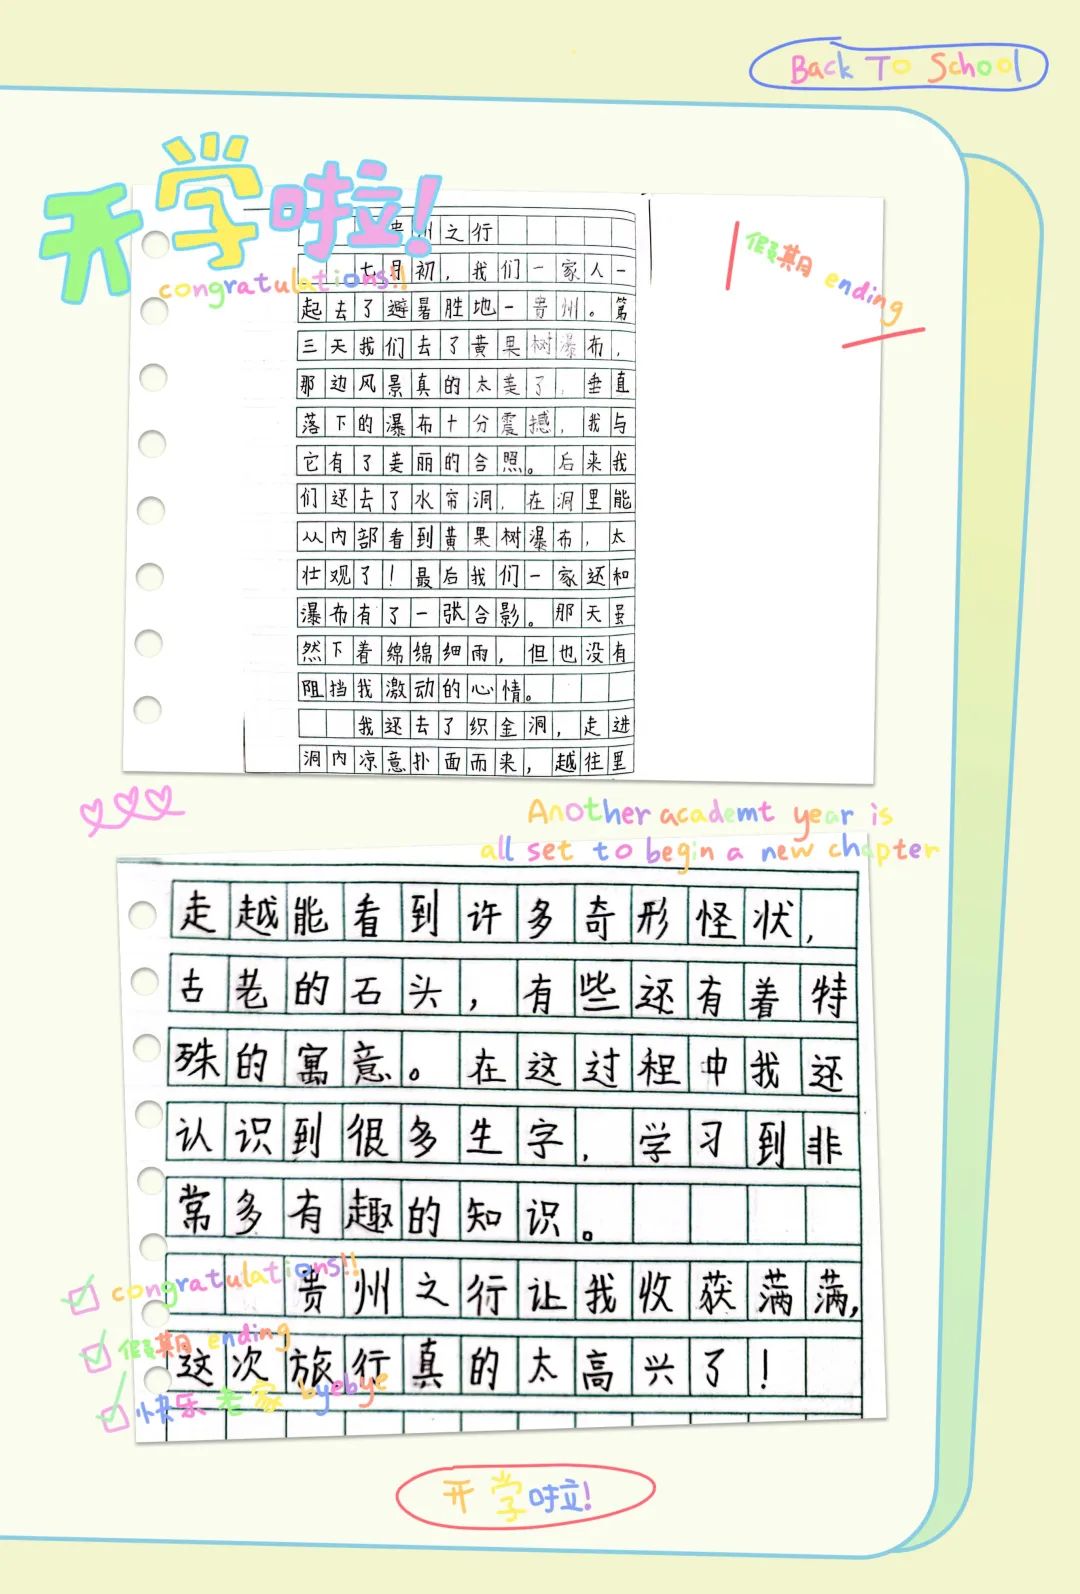 Back To School
开学啦!
congratulations!!
假期 ending
贵州之行
七月初，我们一家人一
起去了避暑胜地一贵州。第
三天我们去了黄果树瀑布，
那边风景真的太美了，垂直
落下的瀑布十分震撼，我与
它有了美丽的合照。后来我
们还去了水帘洞，在洞里能
从内部看到黄果树瀑布，太
壮观了！最后我们一家还和
瀑布有了一张合影。那天虽
然下着绵绵细雨，但也没有
阻挡我激动的心情。
我还去了织金洞，走进
洞内凉意扑面而来，越往里
Another academt year is
all set to begin a new chapter
走越能看到许多奇形怪状，
古老的石头，有些还有着特
殊的寓意。在这过程中我还
认识到很多生字，学习到非
常多有趣的知识。
贵州之行让我收获满满，
这次旅行真的太高兴了！
congratulations!!
假期 ending
快乐老家 byebye
开学啦!